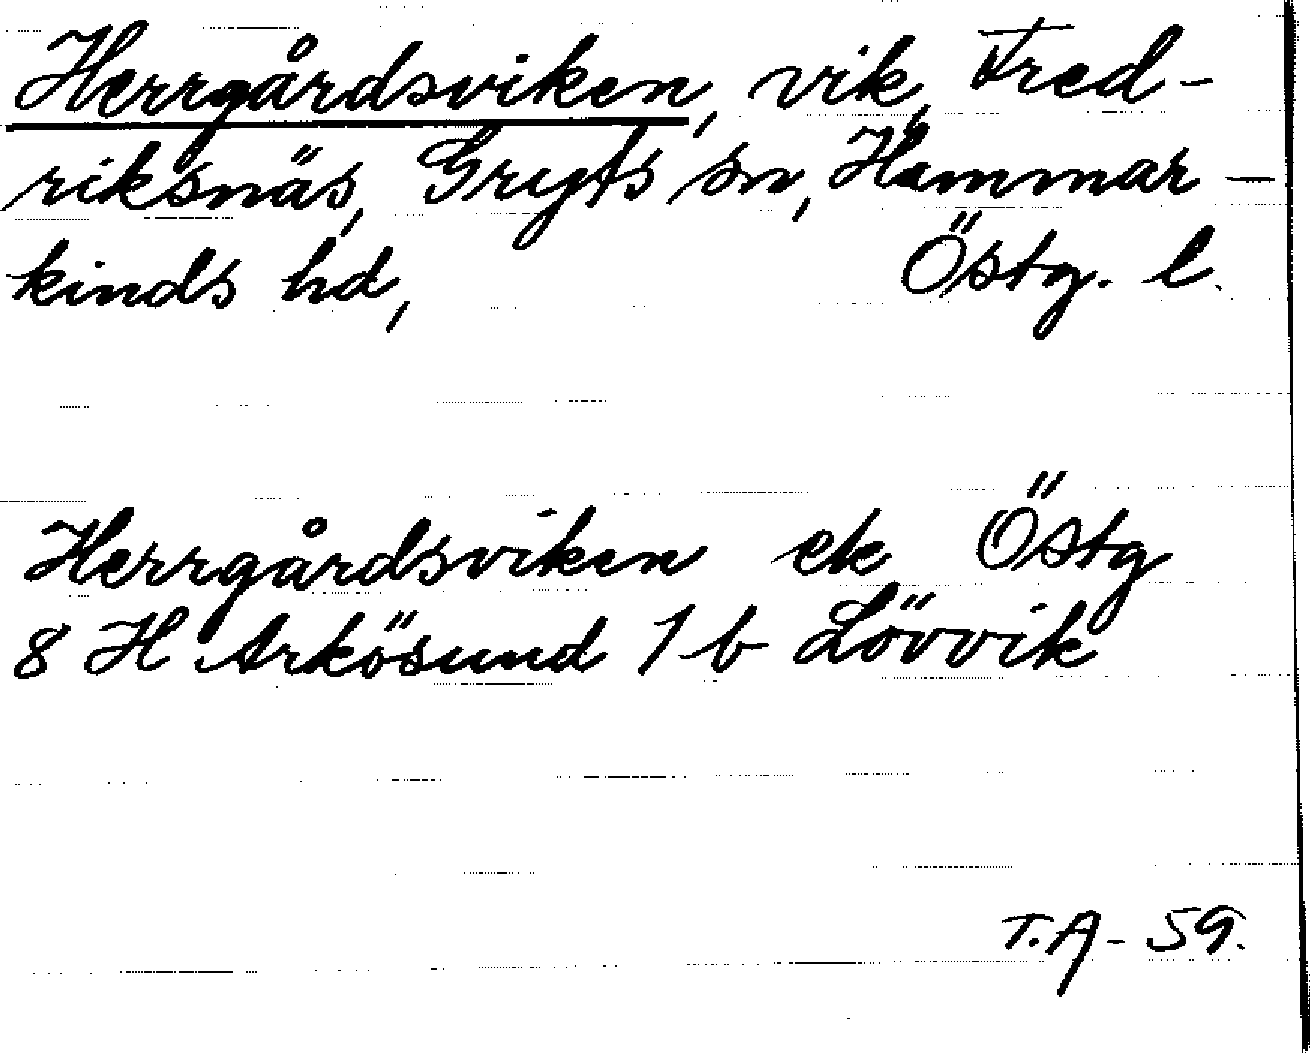 Herrgårdsviken, vik, Fred-
riksnäs, Gryts sn, Hammar-
kinds hd, Östg. l.
Herrgårdsviken ek Östg
8 H Arkösund 1 b Lövvik
T.A - 59.